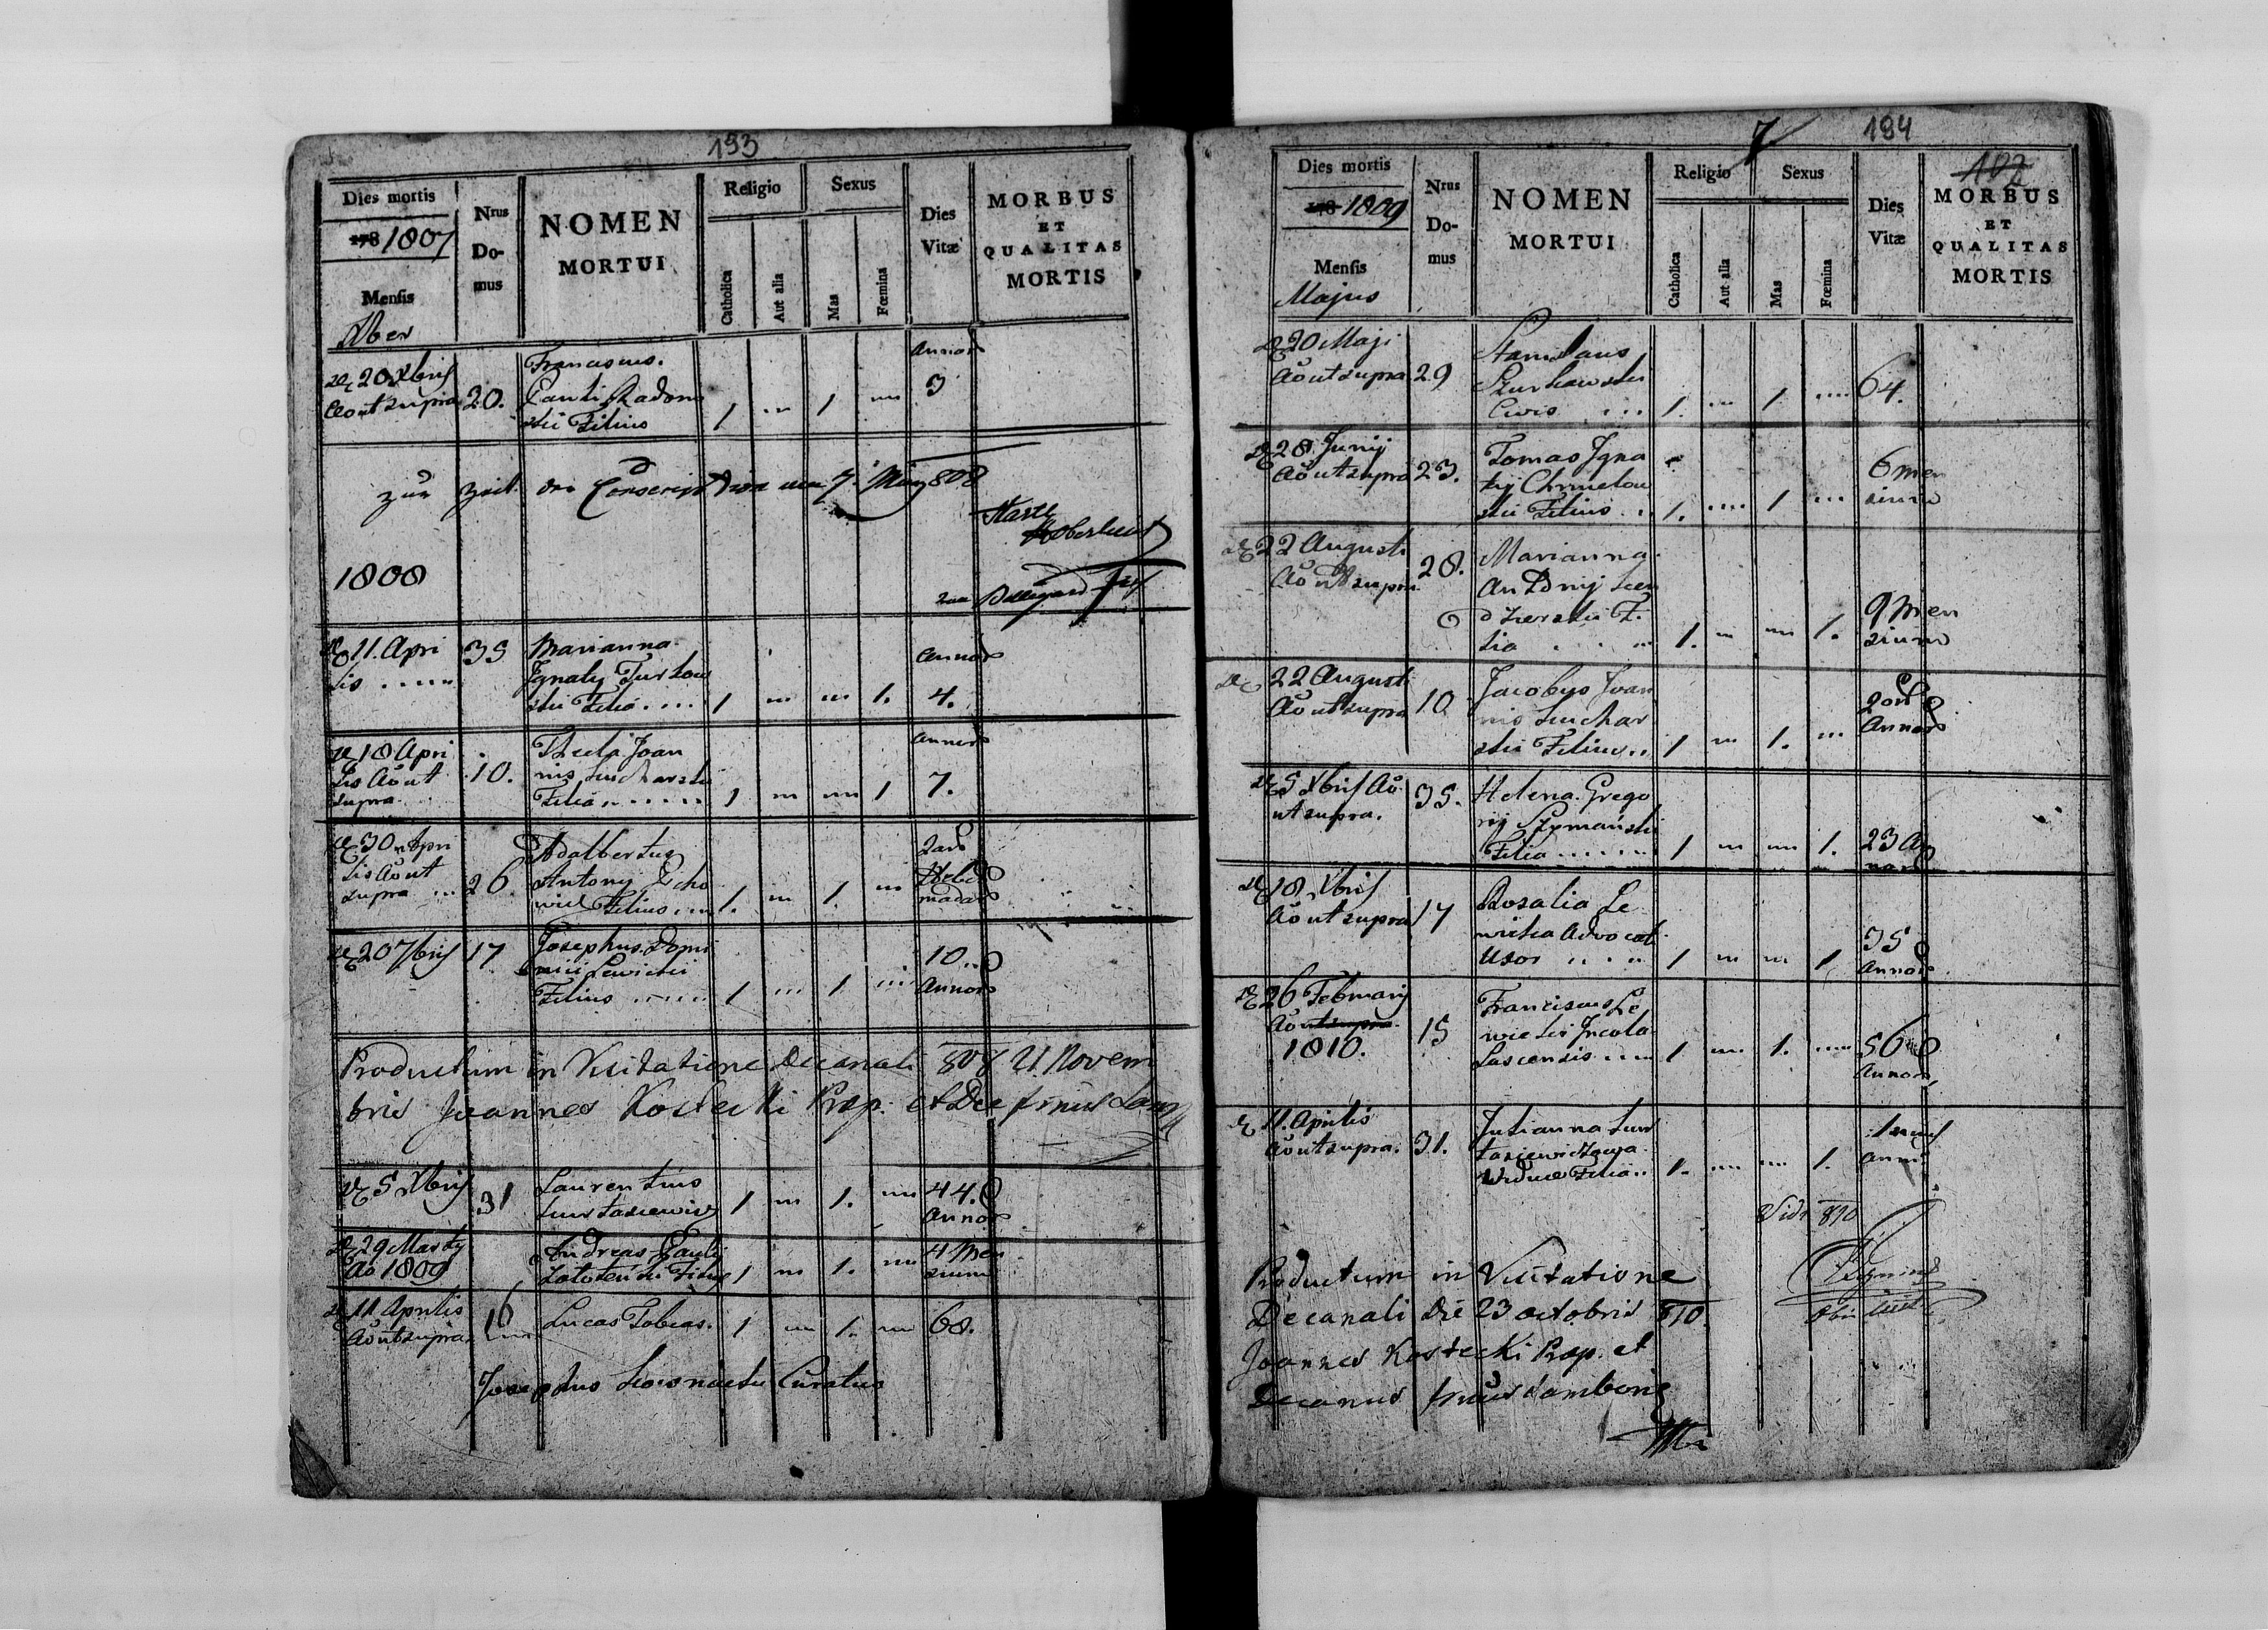 193
Dies mortis
178 1807
Mensis
Xber
Nrus
Do-
mus
NOMEN
MORTUI
Religio
Catholica
Aut alia
Sexus
Mas
Fœmina
Dies
Vitæ
MORBUS
ET
QUALITAS
MORTIS
20 Xbris
Ao ut supra
20.
Franciscus
Filius
1 1
Annor
3
zur Zeit der Conscription 7 März 808
1808
11. Apri
lis
35
Marianna
Ignatij Turkow
ski Filia
1 1.
Annor
4.
18 Apri
lis Ao ut
supra
10.
Thecla Joan
nis Sucharski
Filia
1 1
Annor
7.
30 Apri
lis Ao ut
supra
26.
Adalbertus
Antonij
Filius
1. 1.
Hebdo
madar
20 7bris
17
Josephus Domi
nici Lewicki
Filius
1 1
10
Annor
Productum in Visitatione Decanali 808 21 Novem
bris Joannes Kostecki Præp. et Dec
5 Xbris
31
Laurentius
1 1.
44.
Annor
29 Martij
Ao 1809
Andreas Pauli
1 1.
4 Men
sium
11 Aprilis
Ao ut supra
16
Lucas Tobias.
1 1.
68.
Josephus Curatus
7
194
107
Dies mortis
178 1809
Mensis
Majus
Nrus
Do-
mus
NOMEN
MORTUI
Religio
Catholica
Aut alia
Sexus
Mas
Fœmina
Dies
Vitæ
MORBUS
ET
QUALITAS
MORTIS
20 Maji
Ao ut supra
29
Stanislaus
Civis
1. 1.
64.
28 Junij
Ao ut supra
23.
Tomas Igna
tij Chmielow
ski Filius
1. 1
6 men
sium
22 Augusti
Ao ut supra
28.
Marianna
Antonij
dzierski Fi
lia
1. 1.
9 Men
sium
22 Augusti
Ao ut supra
10
Jacobus Joan
nis Suchar
ski Filius
1 1.
Annor
5 Xbris Ao
ut supra.
35.
Helena Grego
rij Szymański
Filia
1 1.
23 An
nor
18 Xbris
Ao ut supra
17
Rosalia Le
wicka Advocat
Uxor
1 1
35
Annor
26 Februarij
Ao ut supra
1810.
15
Franciscus Le
wicki Incola
1 1.
56
Annor
11. Aprilis
Ao ut supra.
31.
Julianna
Viduæ Filia
1. 1.
1
Anni
Vidi 810
Productum in Visitatione
Decanali die 23 octobris 810
Joannes Kostecki Præp. et
Decanus Samborien